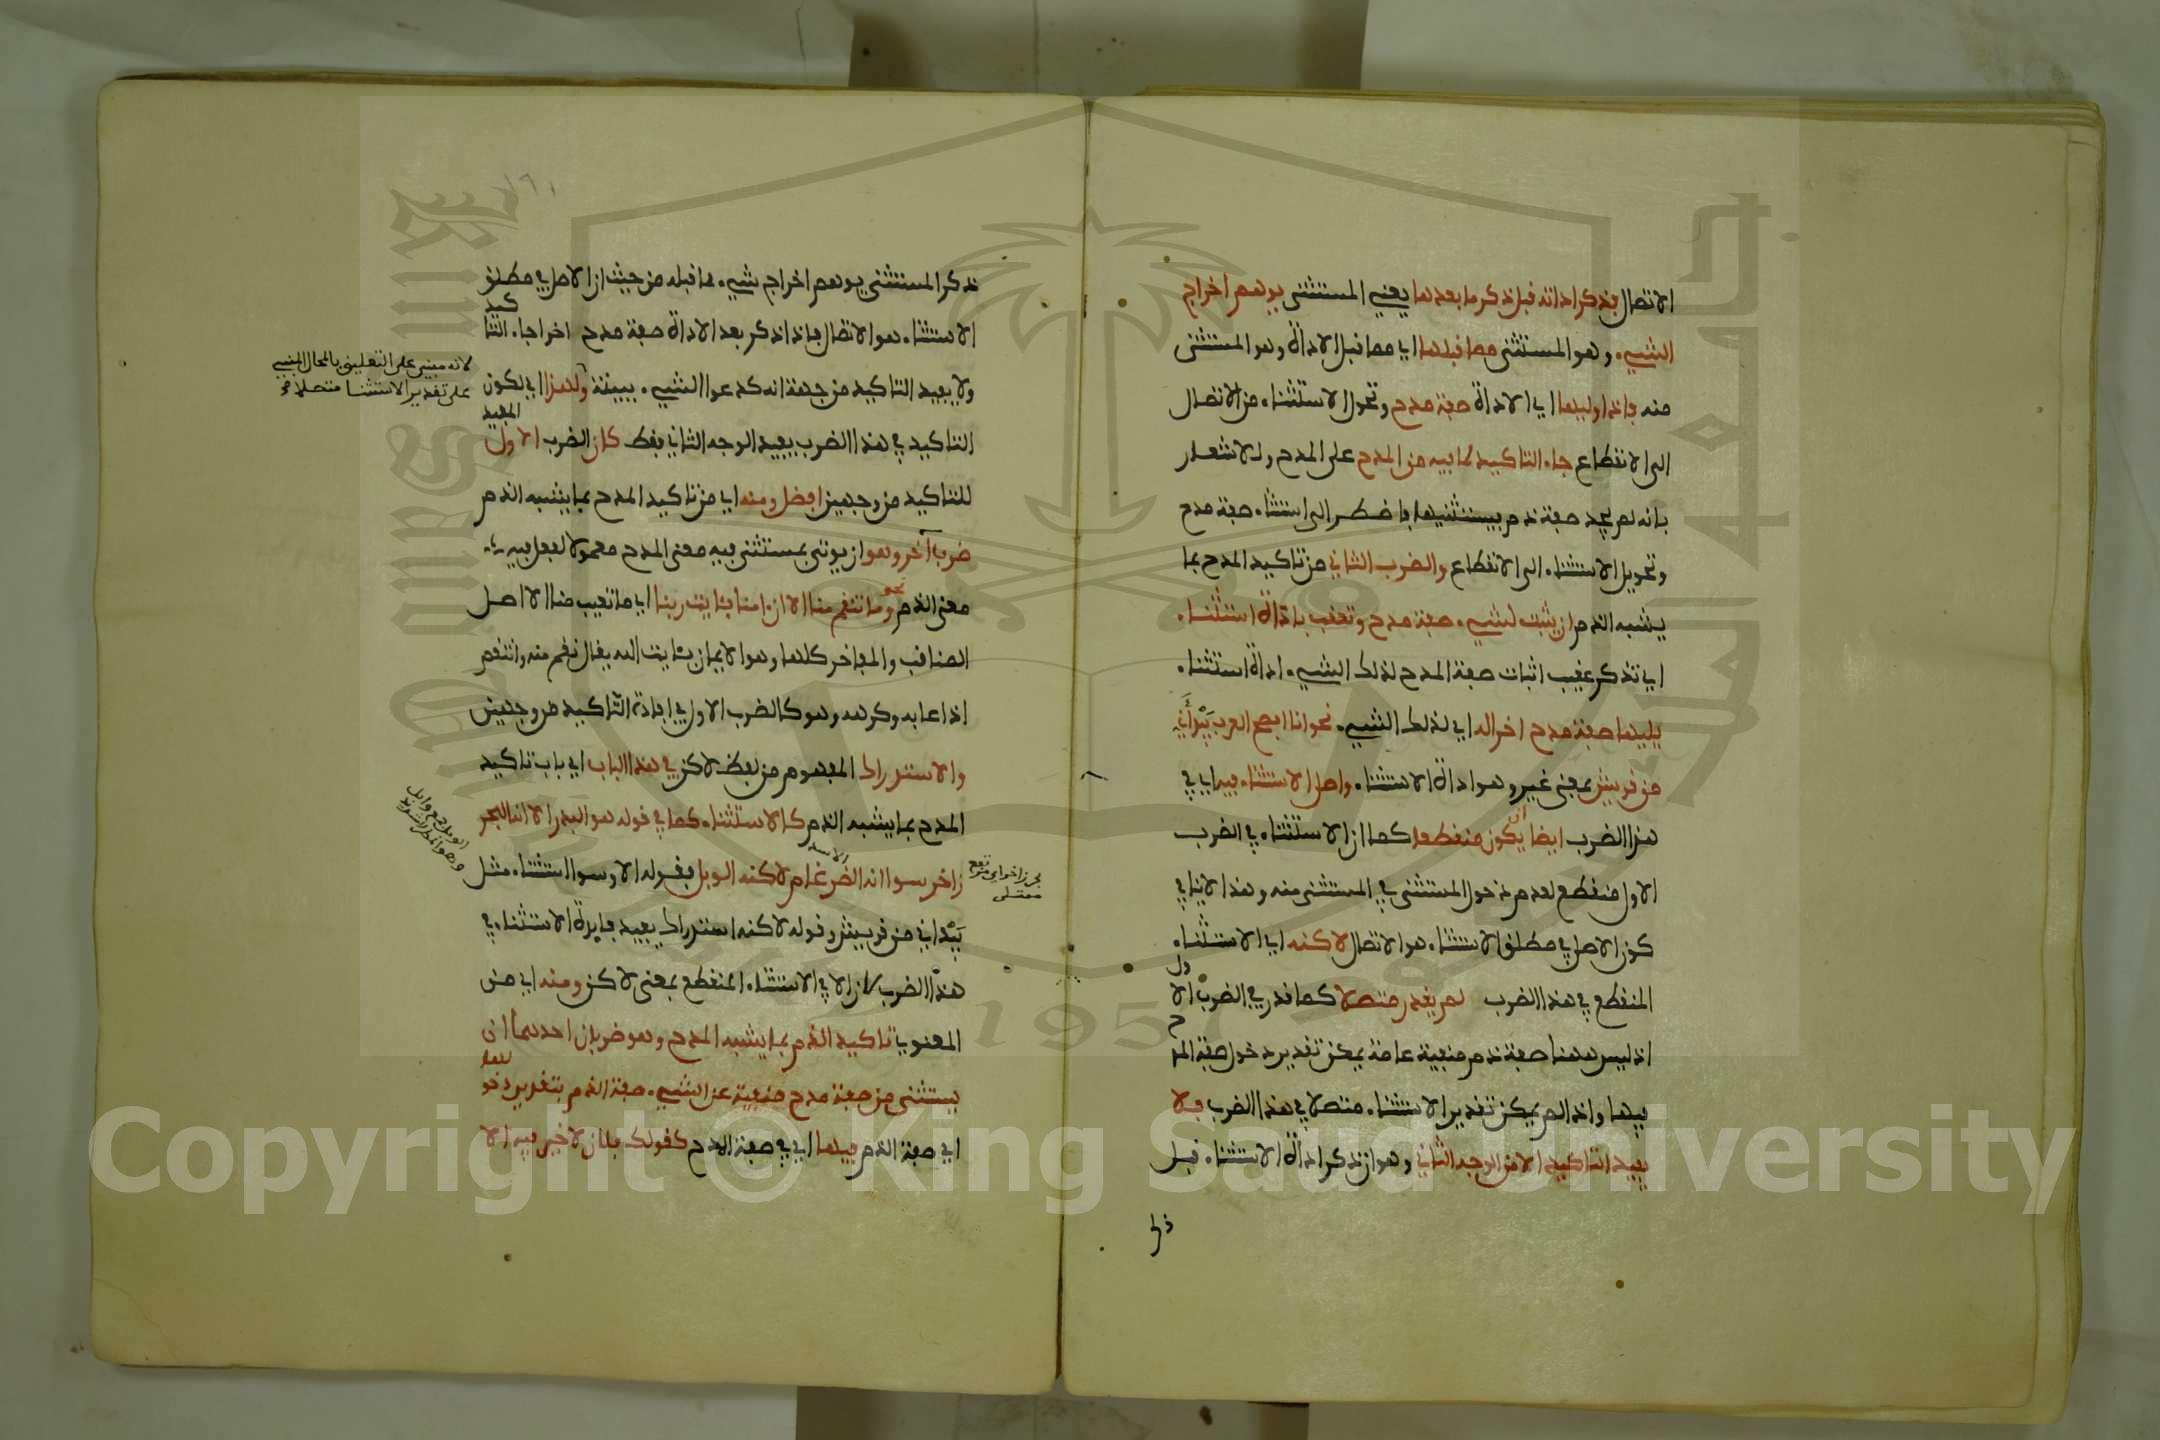 الاتصال فذكر اداته قبل ذكر ما بعدها يعني المستثنى يوهم اخراج
الشيء وهو المستثنى مما قبلها اي مما قبل الاداة وهو المستثنى
منه فاذا وليها اي الاداة صفة مدح وتحول الاستثناء من الاتصال
الى الانقطاع جاء التاكيد لما فيه من المدح على المدح والاشعار
بانه لم يجد صفة ذم يستثنيها فاضطر الى استثناء صفة مدح
وتحويل الاستثناء الى الانقطاع والضرب الثاني من تاكيد المدح بما
يشبه الذم ان يثبت لشيء صفة مدح وتعقب باداة استثناء
اي تذكر عقيب اثبات صفة المدح لذلك الشيء اداة استثناء
يليها صفة مدح اخرى له اي لذلك الشيء نحو انا افصح العرب بَيْدَ أَنّي
من قريش بمعنى غير وهو اداة الاستثناء واصل الاستثناء فيه اي في
هذا الضرب ايضا ان يكون منقطعا كما ان الاستثناء في الضرب
الاول منقطع لعدم دخول المستثنى في المستثنى منه وهذا لا ينافي
كون الاصل في مطلق الاستثناء هو الاتصال لاكنه اي الاستثناء
المنقطع في هذا الضرب لم يقدر متصلا كما قدر في الضرب الاول
اذ ليس ههنا صفة ذم منفية عامة يمكن تقدير دخول صفة المدح
فيها واذا لم يمكن تقدير الاستثناء متصلا في هذا الضرب فلا
يفيد التاكيد الا من الوجه الثاني وهو ان ذكر اداة الاستثناء قبل
ذكر المستثنى يوهم اخراج شيء مما قبله من حيث ان الاصل في مطلق
الاستثناء هو الاتصال فاذا ذكر بعد الاداة صفة مدح اخرى جاء التاكيد
ولا يفيد التاكيد من جهة انه كدعوى الشيء ببينة ولهذا اي لكون
التاكيد في هذا الضرب يفيد الوجه الثاني فقط كان الضرب الاول المفيد
للتاكيد من وجهين افضل ومنه اي من تاكيد المدح بما يشبه الذم
ضرب آخر وهو ان يوتى بمستثنى فيه معنى المدح معمولا لفعل فيه
معنى الذم نحو وما تنقم منا الا ان امنا بئايت ربنا اي ما تعيب منا الا اصل
المناقب والمفاخر كلها وهو الايمان بئايت الله يقال نقم منه وانتقم
اذا عابه وكرهه وهو كالضرب الاول في افادة التاكيد من وجهين
والاستدراك المفهوم من لفظ لاكن في هذا الباب اي باب تاكيد
المدح بما يشبه الذم كالاستثناء كما في قوله هو البدر الا انه البحر
زاخر سوى انه الضرغام لاكنه الوبل فقوله الا وسوى استثناء مثل
بَيْدَ اني من قريش وقوله لاكنه استدراك يفيد فايدة الاستثناء في
هذا الضرب لان الا في الاستثناء المنقطع بمعنى لاكن ومنه اي من
المعنوي تاكيد الذم بما يشبه المدح وهو ضربان احدهما ان
يستثنى من صفة مدح منفية عن الشيء صفة الذم بتقدير دخولها
اي صفة الذم فيها اي في صفة المدح كقولك فلان لا خير فيه الا
لانه مبني على التعليق بالمحال المبني
على تقدير الاستثنا متصلا
الاسد